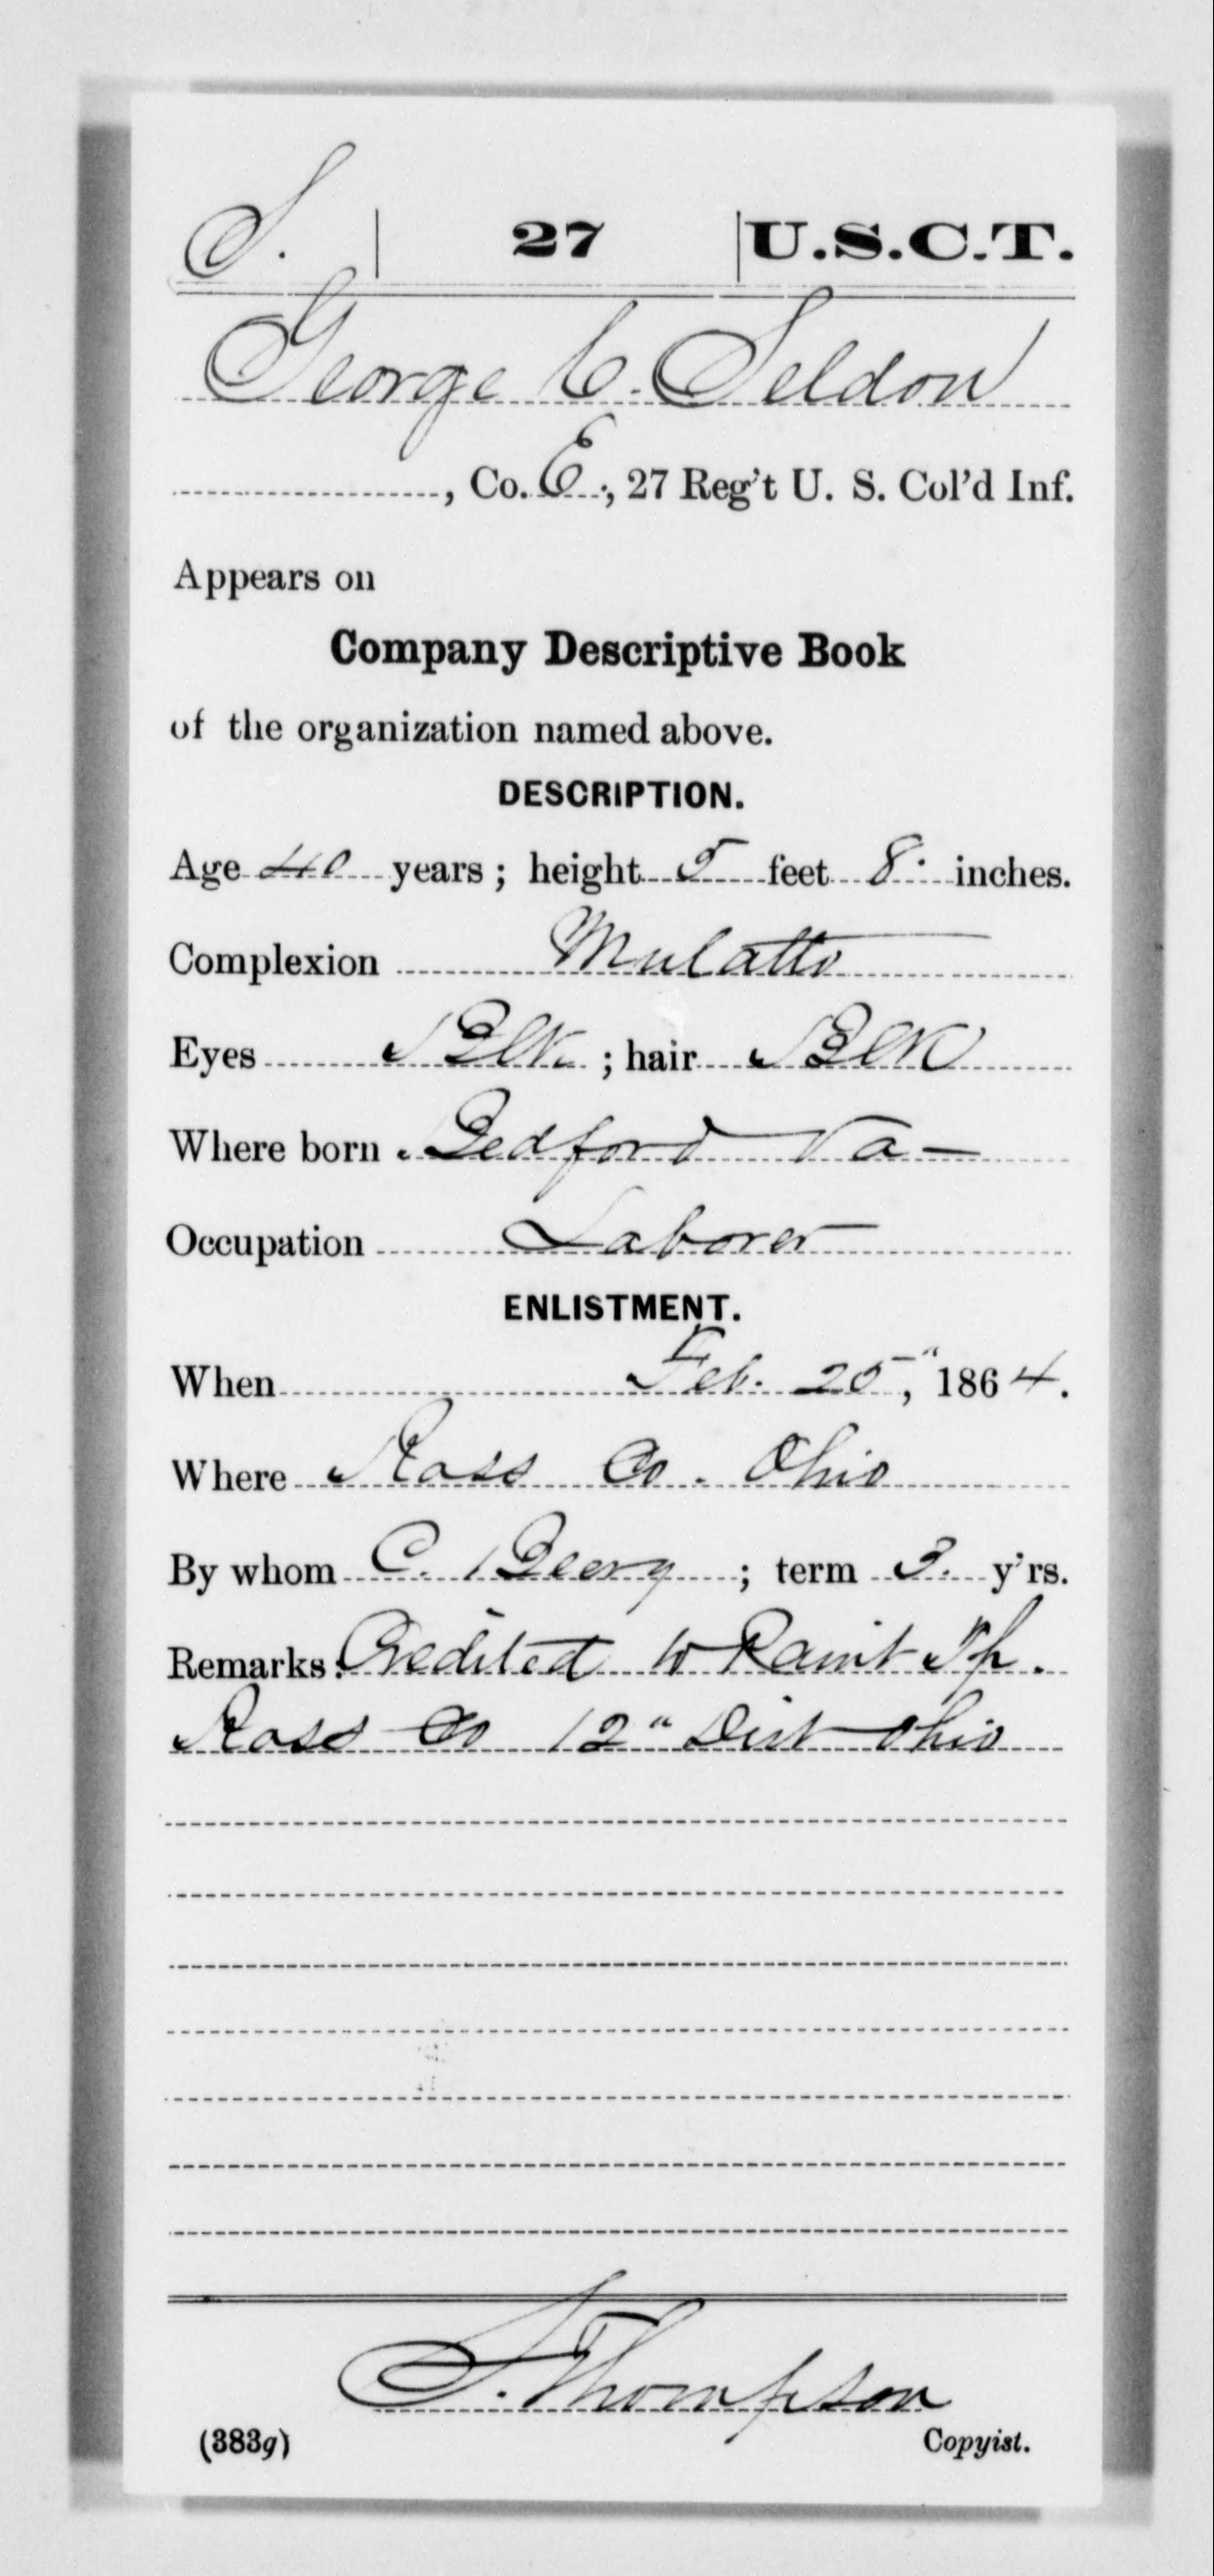 S. 27 U.S.C.T.
George C. Seldon
, Co. E., 27 Reg't U. S. Col'd Inf.
Appears on
Company Descriptive Book
of the organization named above.
DESCRIPTION.
Age 40 years; height 5 feet 8 inches.
Complexion Mulatto
Eyes Blk; hair Blk
Where born Bedford Va
Occupation Laborer
ENLISTMENT.
When Feb. 25", 1864.
Where Ross Co. Ohio
By whom C. Beery; term 3. y'rs.
Remarks: Credited to Paint Tp.
Ross Co 12" Dist Ohio
S. Thompson
(383g) Copyist.